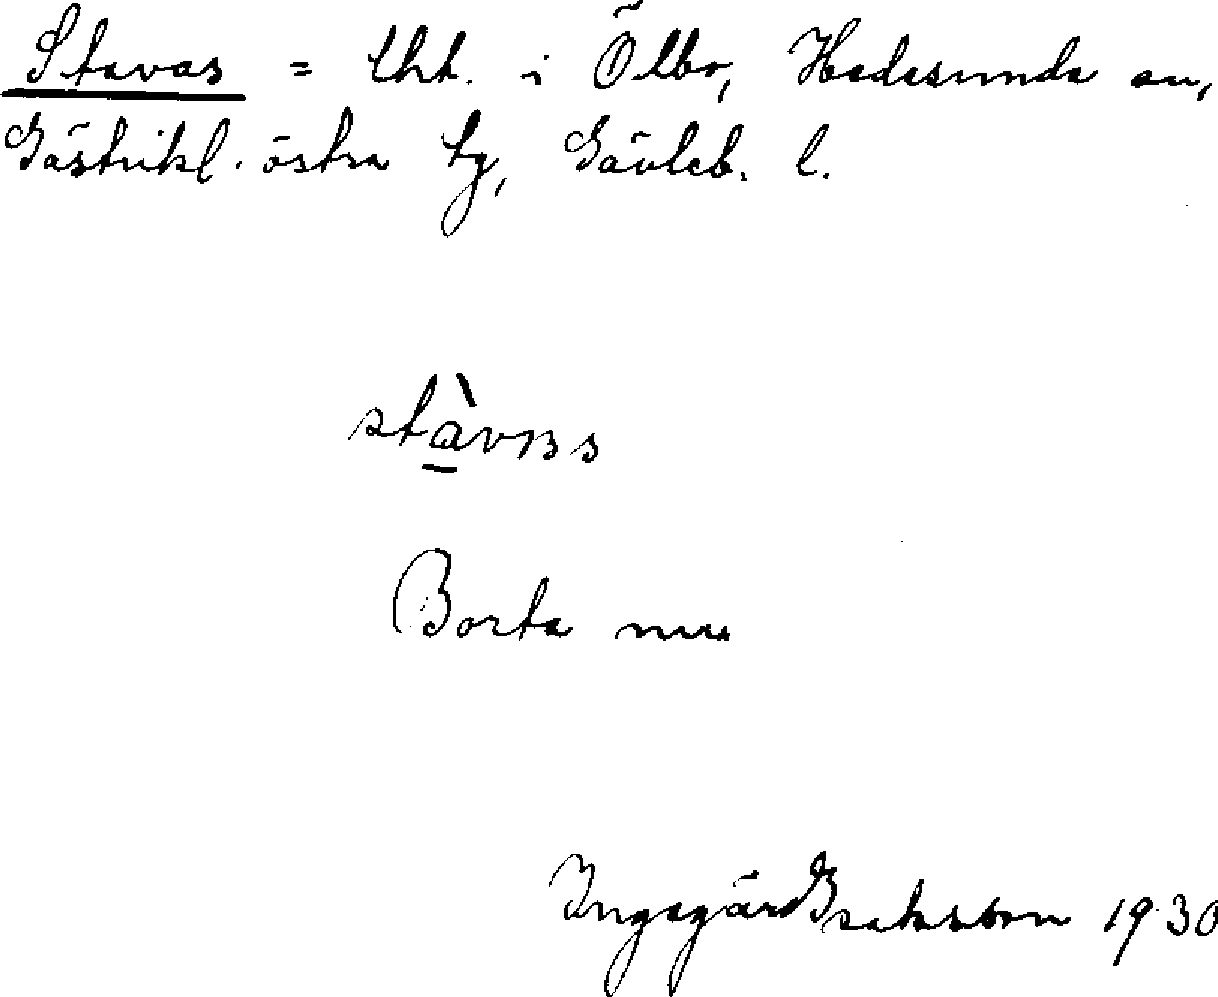 Stavas = lht. i Ölbo, Hedesunda sn,
Gästrikl. östra tg, Gävleb. l.
stàvɜs
Borta nu
Ingegärd Isaksson 1930